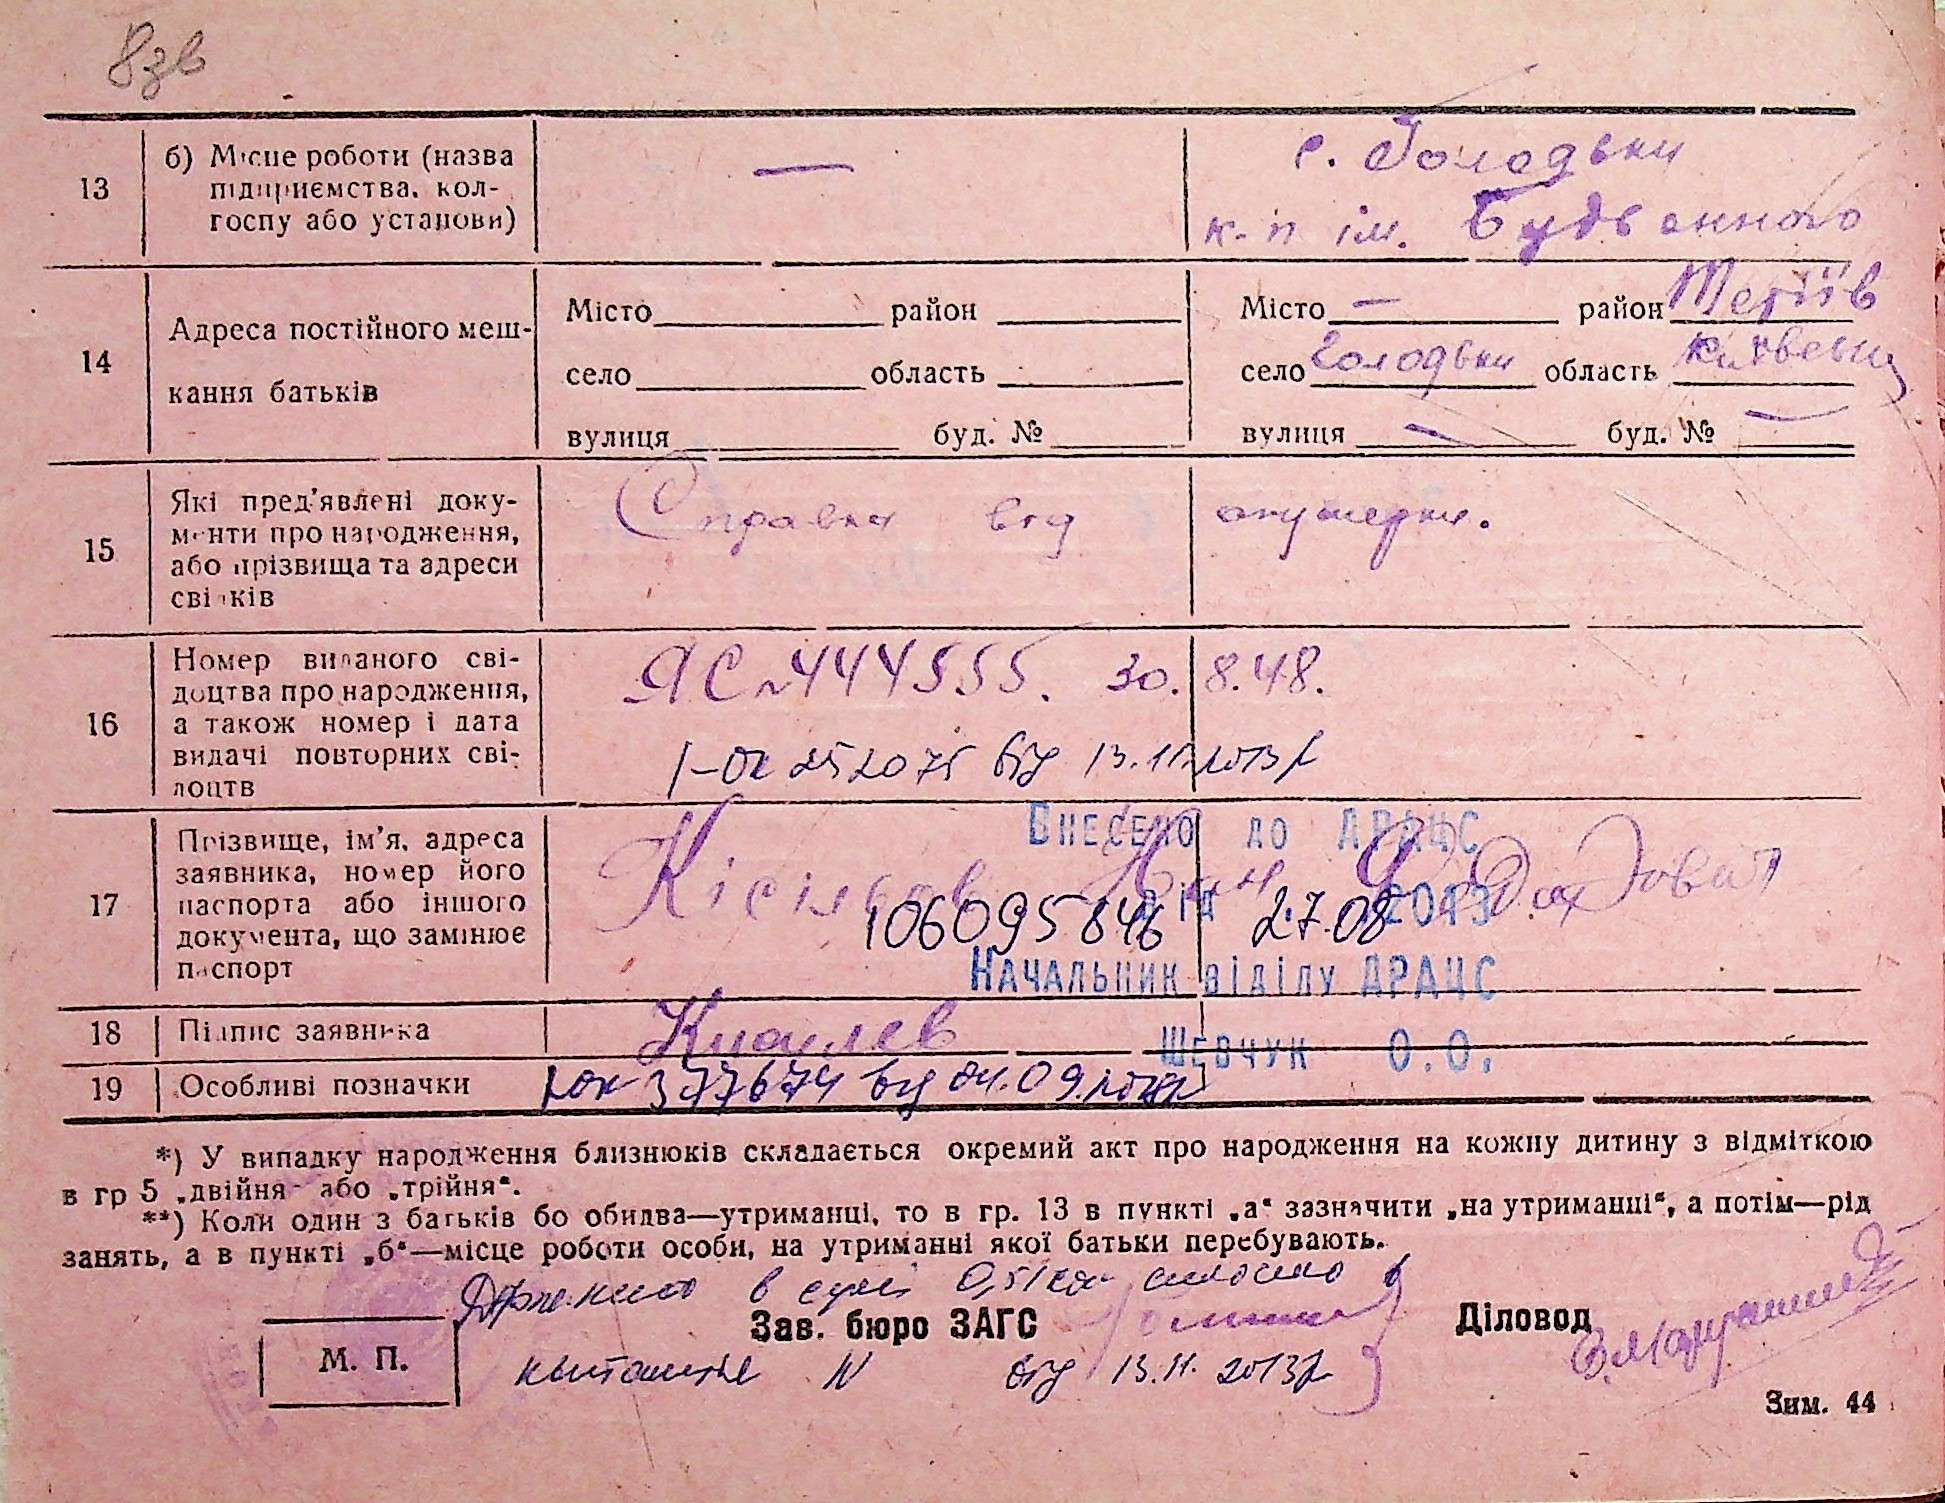 8зв
13
б) Місце роботи (назва
підприємства, кол-
госпу або установи)
—
с. Голодьки
к-п ім. Будьенного
14
Адреса постійного меш-
кання батьків
Місто район
село область
вулиця буд. №
Місто — район Тетіїв
село Голодьки область Київськ
вулиця — буд. № —
15
Які пред'явлені доку-
менти про народження,
або прізвища та адреси
свідків
Справка від акушерки.
16
Номер виданого сві-
доцтва про народження,
а також номер і дата
видачі повторних сві-
доцтв
ЯС №444555. 30.8.48.
І-ок 252075 від 13.11.2013р
17
Прізвище, ім'я, адреса
заявника, номер його
паспорта або іншого
документа, що замінює
паспорт
Внесено до ДРАЦС
106095846 від 27.08 2013
Начальник відділу ДРАЦС
Шевчук О.О.
18
Підпис заявника
19
Особливі позначки
І-ок 377674 від 04.09.
*) У випадку народження близнюків складається окремий акт про народження на кожну дитину з відміткою
в гр 5 „двійня“ або „трійня“.
**) Коли один з батьків бо обидва—утриманці, то в гр. 13 в пункті „а“ зазначити „на утриманні“, а потім—рід
занять, а в пункті „б“—місце роботи особи, на утриманні якої батьки перебувають.
Держмито в сумі 0,51 коп сплачено
Зав. бюро ЗАГС
Діловод
М. П.
квитанція N від 13.11.2013р
Зим. 44